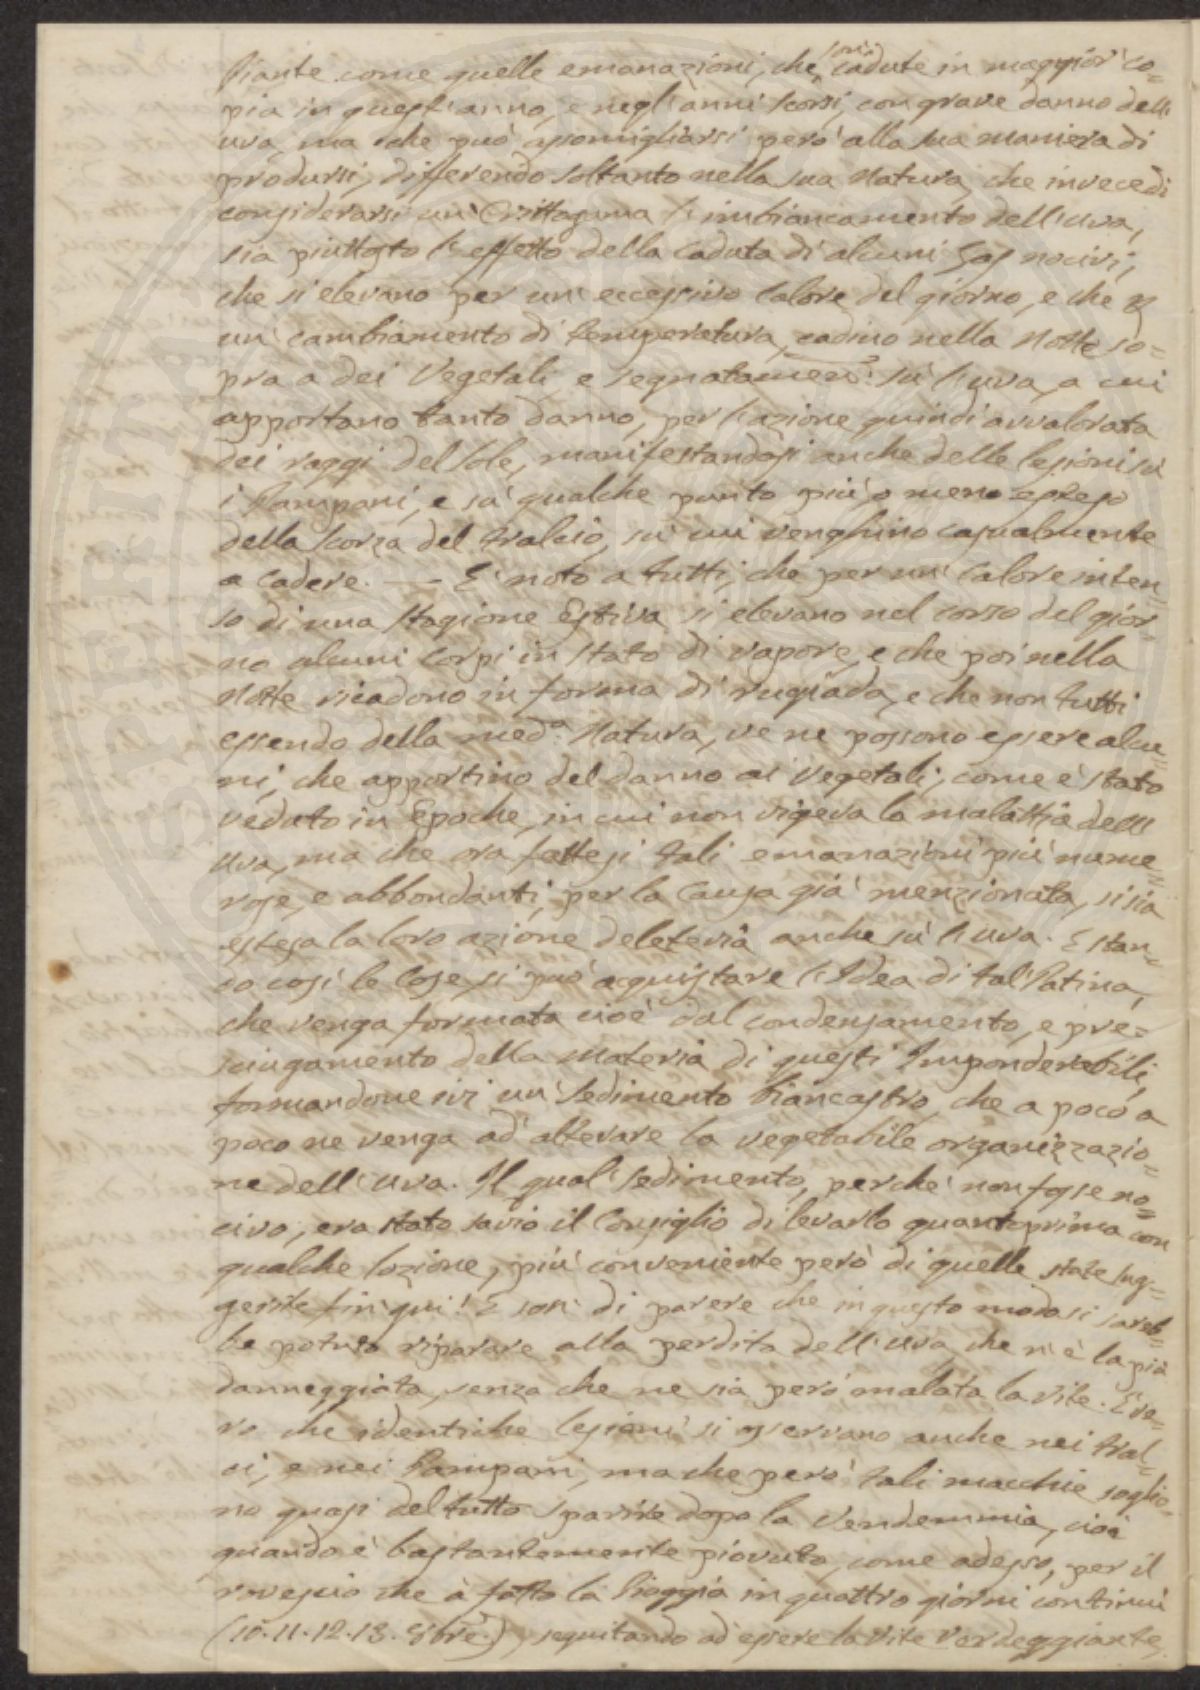 Piante come quelle emanazioni, che son' cadute in maggior' co=
pia in quest'anno, e negl'anni scorsi, con grave danno dell'
uva, ma che può assomigliarsi però alla sua maniera di
prodursi, differendo soltanto nella sua Natura, che invece di
considerarsi un' Crittagama l'imbiancamento dell'uva,
sia piuttosto l'effetto della caduta di alcuni Gas nocivi,
che si elevano per un' eccessivo Calore del giorno, e che p
un' cambiamento di temperatura, cadino nella Notte so=
pra a dei Vegetali e segnatamen: sù l'uva, a cui
apportano tanto danno, per l'azione quindi avvalorata
dei raggi del Sole, manifestandosi anche delle lesioni sù
i Pampani, e sù qualche punto più, o meno esteso
della scorza del tralcio, sù cui venghino casualmente
a cadere. — E' noto a tutti, che per un' Calore inten=
so di una stagione Estiva si elevano nel corso del gior=
no alcuni Corpi in stato di vapore, e che poi nella
Notte ricadono in forma di rugiada, e che non tutti
essendo della med.ª Natura, ve ne possono essere alcu=
ni, che apportino del danno ai Vegetali, come è stato
veduto in Epoche, in cui non vigeva la malattia dell'
uva, ma che ora fattesi tali emanazioni più nume=
rose, e abbondanti, per la Causa già menzionata, si sia
estesa la loro azione deleteria anche sù l'uva. E stan=
do così le Cose, si può acquistare l'Idea di tal' Patina,
che venga formata cioè dal condensamento, e pro=
sciugamento della Materia di questi Imponderabili,
formandone ivi un' Sedimento biancastro, che a poco a
poco ne venga ad' alterare la vegetabile organizzazio=
ne dell'uva. Il qual' Sedimento, perchè non fosse no=
civo, era stato savio il Consiglio di levarlo quantoprima con
qualche lozione, più conveniente però di quelle state sug=
gerite fin' qui! E son' di parere che in questo modo si sareb=
be potuto riparare alla perdita dell'uva, che n'è la più
danneggiata, senza che ne sia però malata la vite. E ve=
ro che identiche lesioni si osservano anche nei tral=
ci, e nei Pampani, ma che però tali macchie soglio=
no quasi del tutto sparire dopo la Vendemmia, cioè
quando è bastantemente piovuto, come adesso, per il
rovescio che à fatto la Pioggia in quattro giorni continui
(10. 11. 12. 13. 8bre.), seguitando ad essere la Vite Verdeggiante,